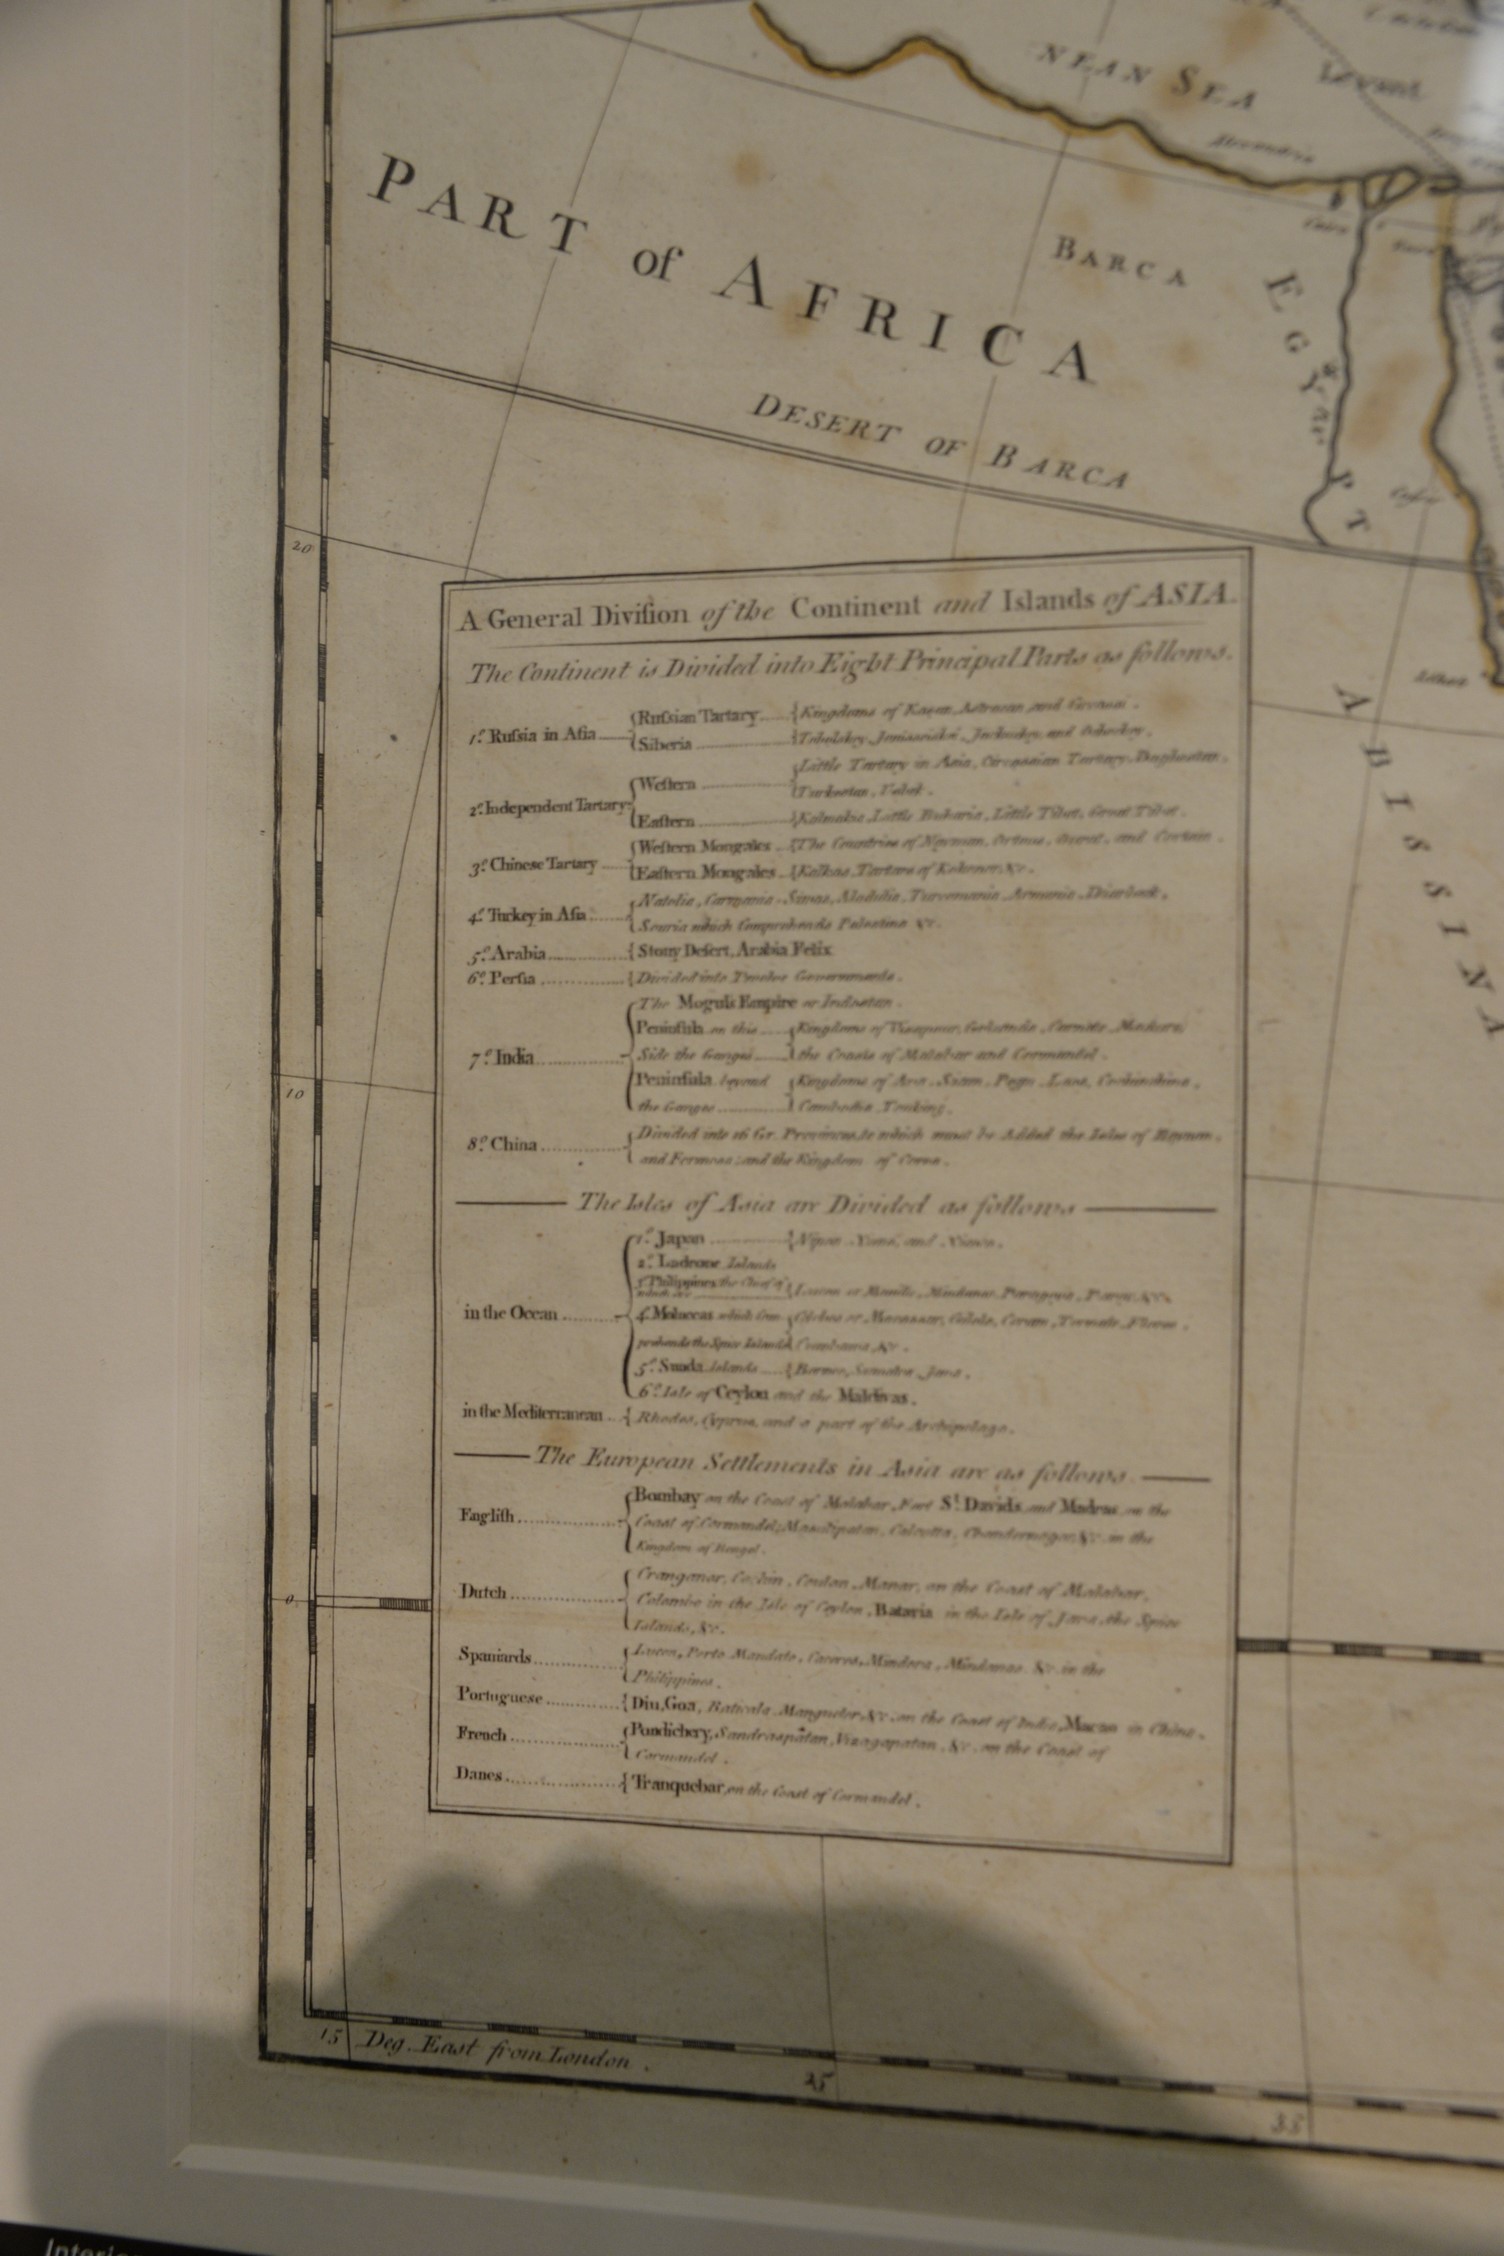 NEAN SEA
Levant
Alexandria
PART of AFRICA
BARCA
EGYPT
DESERT OF BARCA
ABISSINA
20
10
0
A General Diviſion of the Continent and Islands of ASIA.
The Continent is Divided into Eight Principal Parts as follows.
1.º Ruſsia in Aſia
Ruſsian Tartary
Kingdoms of Kasan, Astracan and
Siberia
and
2.º Independent Tartary
Weſtern
Little Tartary in Asia, Circassian Tartary, Daghestan,
Turkestan, Usbek.
Eaſtern
Kalmakia, Little Bukaria, Little Tibet, Great Tibet.
3.º Chinese Tartary
Weſtern Mongales
The Countries of and
Eaſtern Mongales
Kalkas, Tartars of Kokonor, &c.
4.º Turkey in Aſia
Natolia, Carmania, Aladulia, Turcomania, Armenia, Diarbeck,
Souria which Comprehends Palestine &c.
5.º Arabia
Stony Deſert, Arabia Felix
6.º Perſia
Divided into Twelve Governments.
7.º India
The Mogul's Empire or Indostan.
Peninſula on this
Side the Ganges
Kingdoms of Visapour, Golconda, Carnate, Madura,
the Coasts of Malabar and Cormandel.
Peninſula beyond
the Ganges
Kingdoms of Ava, Siam, Pegu, Laos, Cochinchina,
Cambodia, Tonking.
8.º China
Divided into 16 Gr. Provinces, to which must be Added the Isles of Haynan,
and Formosa; and the Kingdom of Corea.
The Isles of Asia are Divided as follows
in the Ocean
1.º Japan
Nipon and
2.º Ladrone Islands
3.º Philippines the Chief of
which are
Lucon or Manilla, Mindanao, Paragoia,
4.º Moluccas which Com-
prehends the Spice Islands
Celebes or Macassar, Gilolo, Ceram, Ternate, Flores,
Cumbava, &c.
5.º Sunda Islands
Borneo, Sumatra, Java.
6.º Isle of Ceylon and the Maldivas.
in the Mediterranean
Rhodes, Cyprus, and a part of the Archipelago.
The European Settlements in Asia are as follows.
Engliſh
Bombay on the Coast of Malabar, Fort St. Davids and Madras on the
Coast of Cormandel; Masulipatan, Calcutta, Chandernagor, &c. in the
Kingdom of Bengal.
Dutch
Cranganor, Cochin, Coulan, Manar, on the Coast of Malabar,
Colombo in the Isle of Ceylon, Batavia in the Isle of Java, the Spice
Islands, &c.
Spaniards
Lucon, Mindora, Mindanao &c. in the
Philippines.
Portuguese
Diu, Goa, Baticala, Mangueler, &c. on the Coast of India, Macao in China.
French
Pondichery, Sandraspatan, Vizagapatan, &c. on the Coast of
Cormandel.
Danes
Tranquebar, on the Coast of Cormandel.
15 Deg. East from London.
25
35